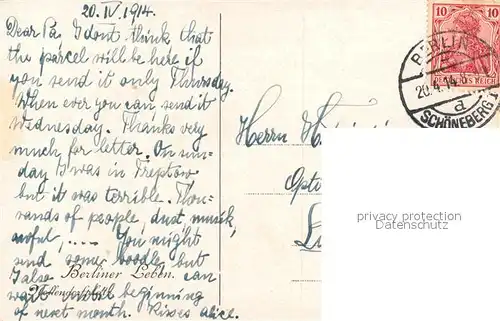 20.IV.1914.
Dear Pa. I dont think that
the parcel will be here if
you send it only Thursday.
When ever you can send it
Wednesday. Thanks very
much for letter. On sun-
day I was in Treptow
but it was terrible. Thou-
sands of people, dust, musik,
awful, .... You might
send some boodle, but
I also can
wait till beginning
of next month. Kisses Alice.
Berliner Leben.
10 10
DEUTSCHES REICH
BERLIN
20.4.14.
a
SCHÖNEBERG 1
Herrn
privacy protection
Datenschutz